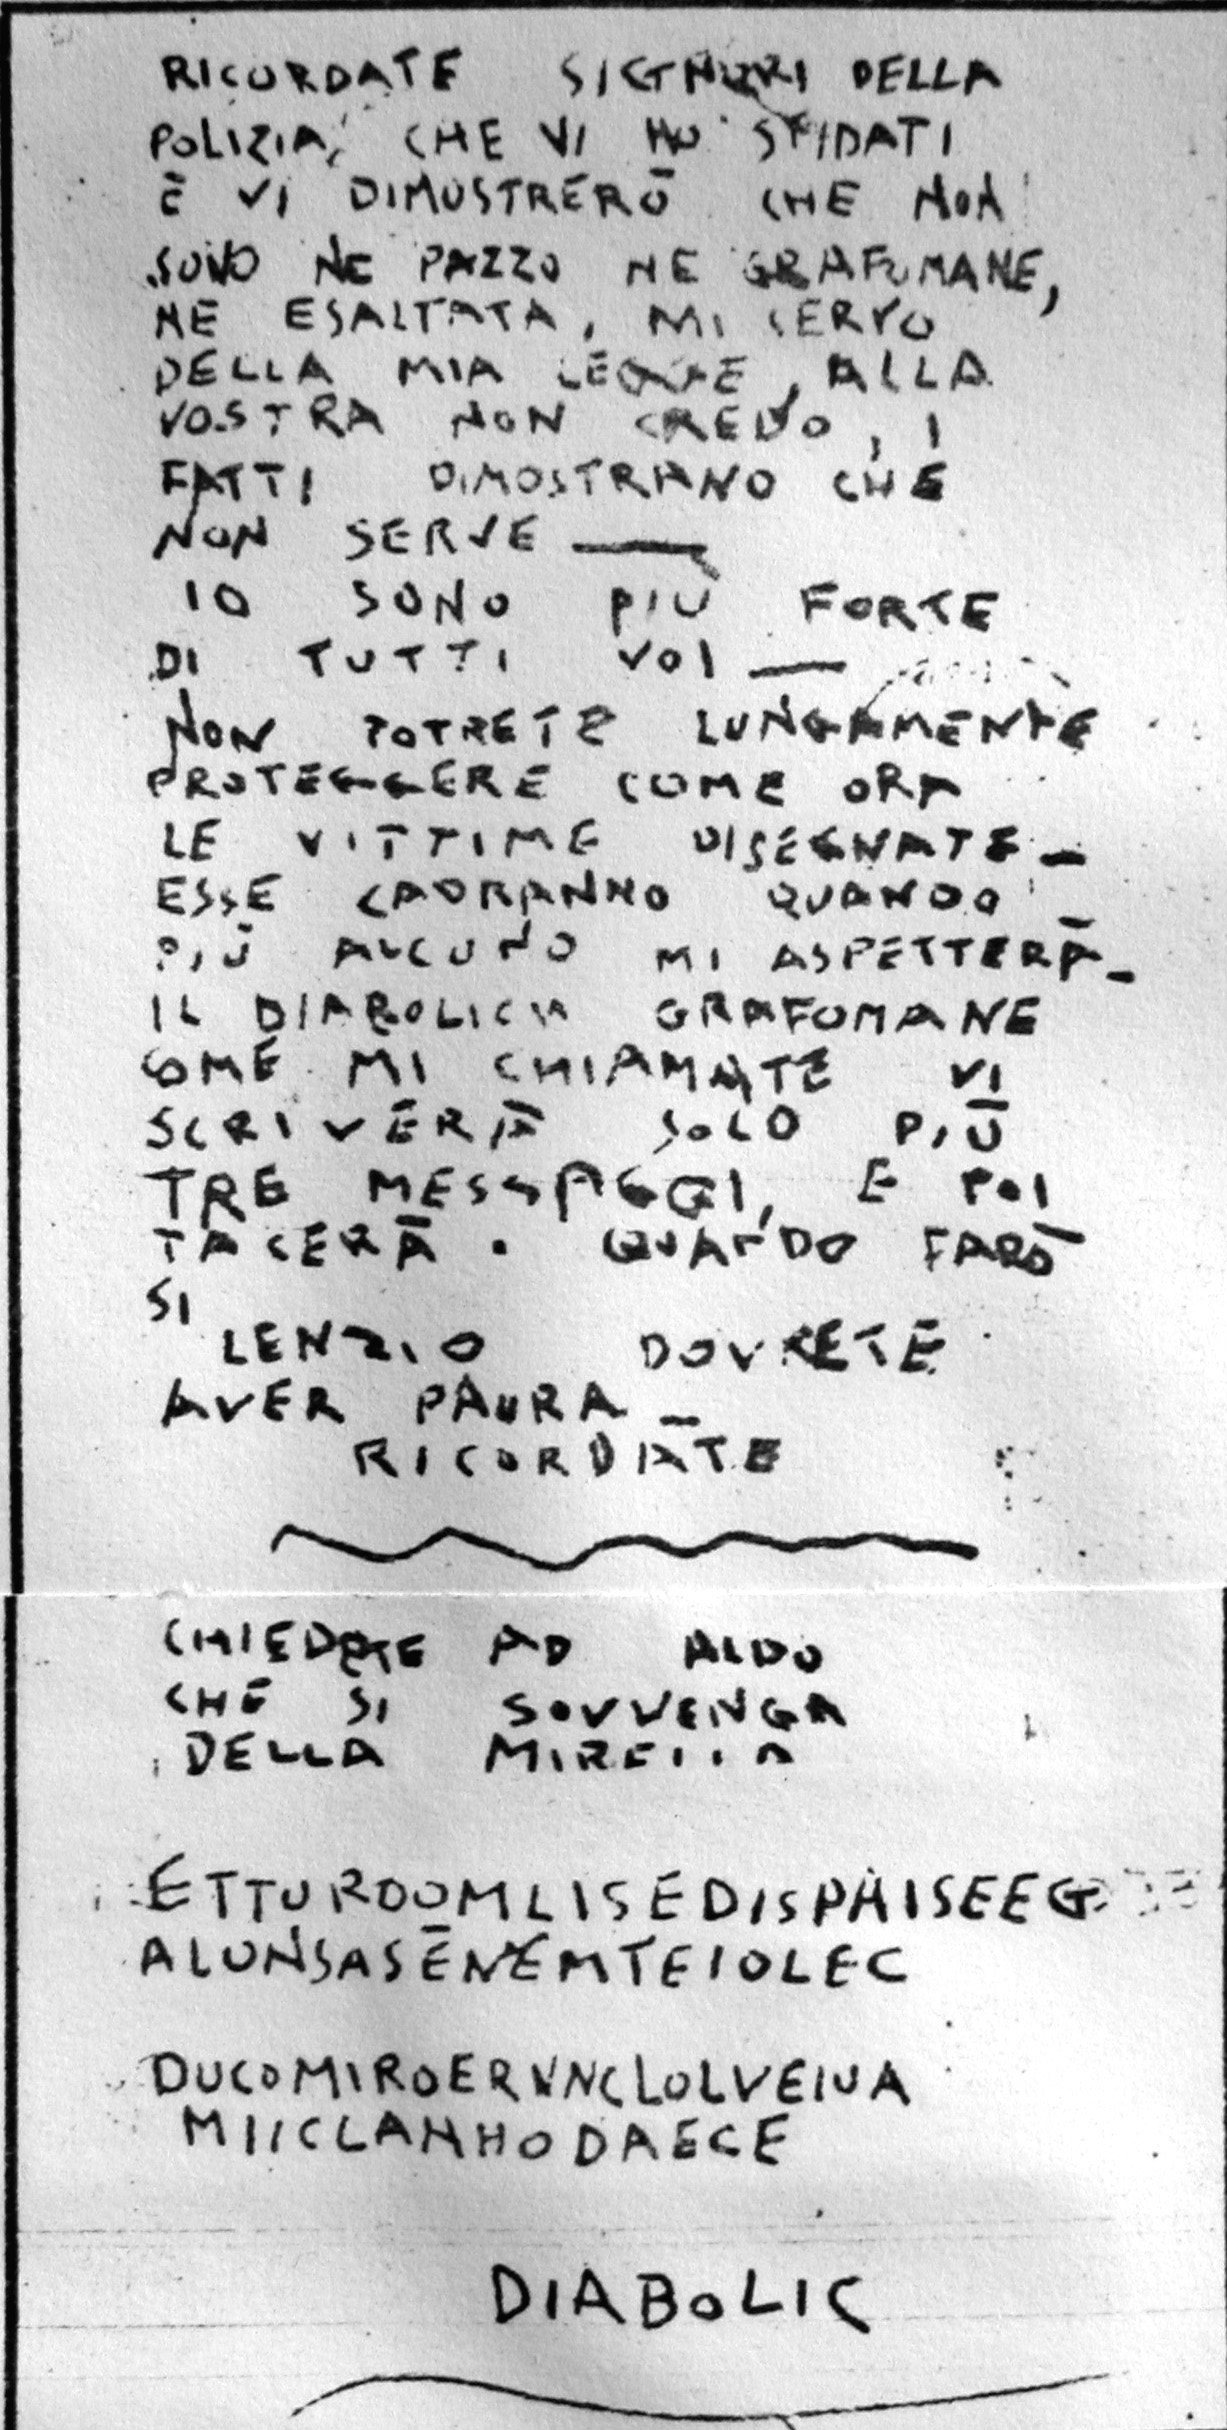 RICORDATE SIGNORI DELLA
POLIZIA, CHE VI HO SFIDATI
E VI DIMOSTRERŌ CHE NON
SONO NE PAZZO NE GRAFOMANE,
NE ESALTATA, MI SERVO
DELLA MIA LEGGE, ALLA
VOSTRA NON CREDO, I
FATTI DIMOSTRANO CHE
NON SERVE —
IO SONO PIÙ FORTE
DI TUTTI VOI —
NON POTRETE LUNGAMENTE
PROTEGGERE COME ORA
LE VITTIME DISEGNATE —
ESSE CADRANNO QUANDO
PIŪ ALCUNO MI ASPETTERĀ —
IL DIABOLICO GRAFOMANE
COME MI CHIAMATE VI
SCRIVERĀ SOLO PIŪ
TRE MESSAGGI, E POI
TACERĀ. QUANDO FARŌ
SI
LENZIO DOVRETE
AVER PAURA —
RICORDATE
CHIEDETE AD ALDO
CHE SI SOVVENGA
DELLA MIRELLA
ETTUROOMLISEDISPAISEEG
ALUNSASENEMTEIOLEC
DUCOMIROERVNCLOLVEIUA
MIICLANHODAECE
DIABOLIC